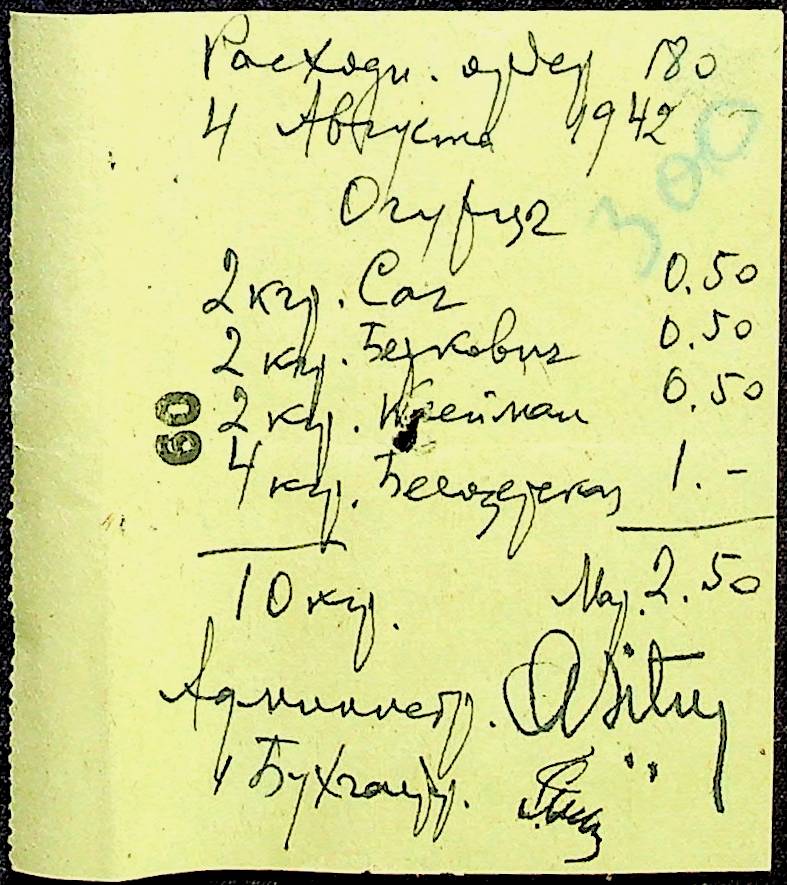 Расходн. ордер 180
4 Августа 1942
300
Огурцы
2 кгр. Саг 0.50
2 кгр. Беркович 0.50
2 кгр. Крейман 0.50
60
4 кгр. Белозерская 1.-
10 кгр. Мар. 2.50
Администр.
Бухгалт.